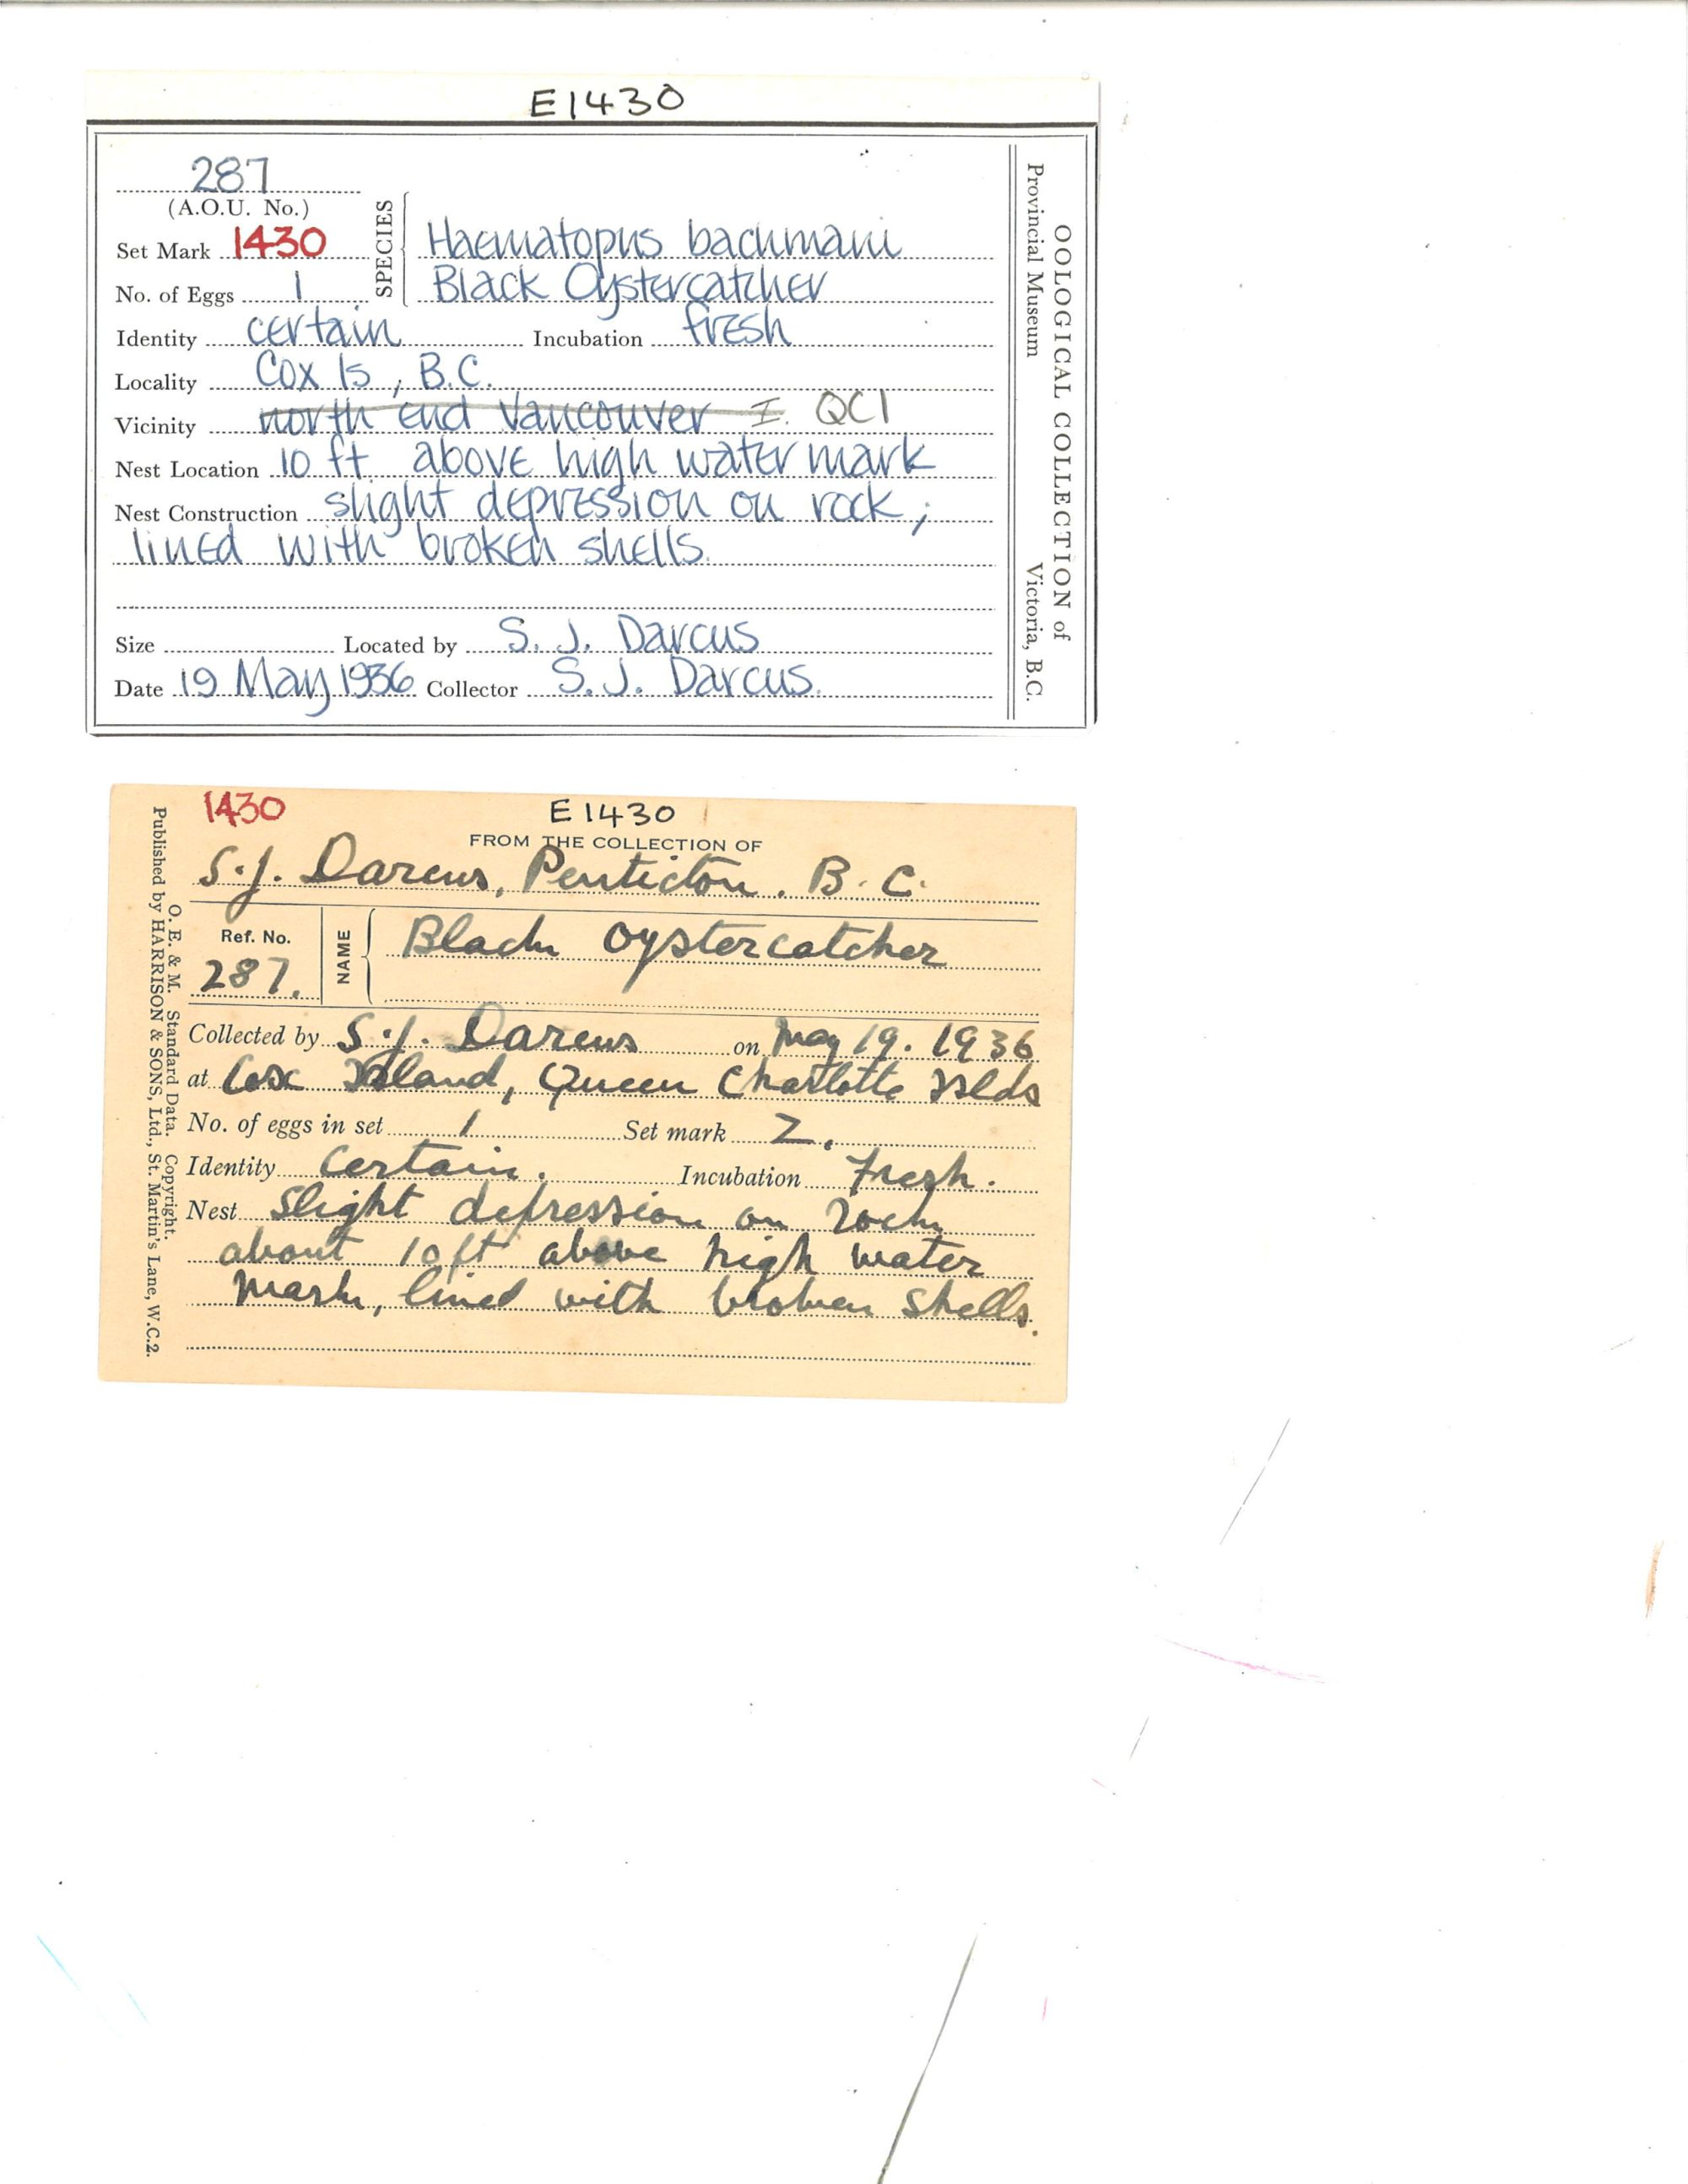 E1430
287
(A.O.U. No.)
SPECIES
Set Mark 1430
Haematopus bachmani
No. of Eggs 1
Black Oystercatcher
Identity certain Incubation fresh
Locality Cox Is, B.C.
Vicinity north end Vancouver I. QCI
Nest Location 10 ft above high water mark
Nest Construction slight depression on rock;
lined with broken shells.
Size Located by S. J. Darcus
Date 19 May 1936 Collector S. J. Darcus.
OOLOGICAL COLLECTION of
Provincial Museum Victoria, B.C.
1430 E1430
FROM THE COLLECTION OF
S.J. Darcus, Penticton. B.C.
Ref. No.
287.
NAME
Black Oystercatcher
Collected by S.J. Darcus on May 19. 1936
at Cox Island, Queen Charlotte Islds
No. of eggs in set 1 Set mark 2.
Identity Certain. Incubation Fresh.
Nest Slight depression on rock
about 10 ft above high water
mark, lined with broken shells.
O. E. & M. Standard Data. Copyright.
Published by HARRISON & SONS, Ltd., St. Martin's Lane, W.C.2.